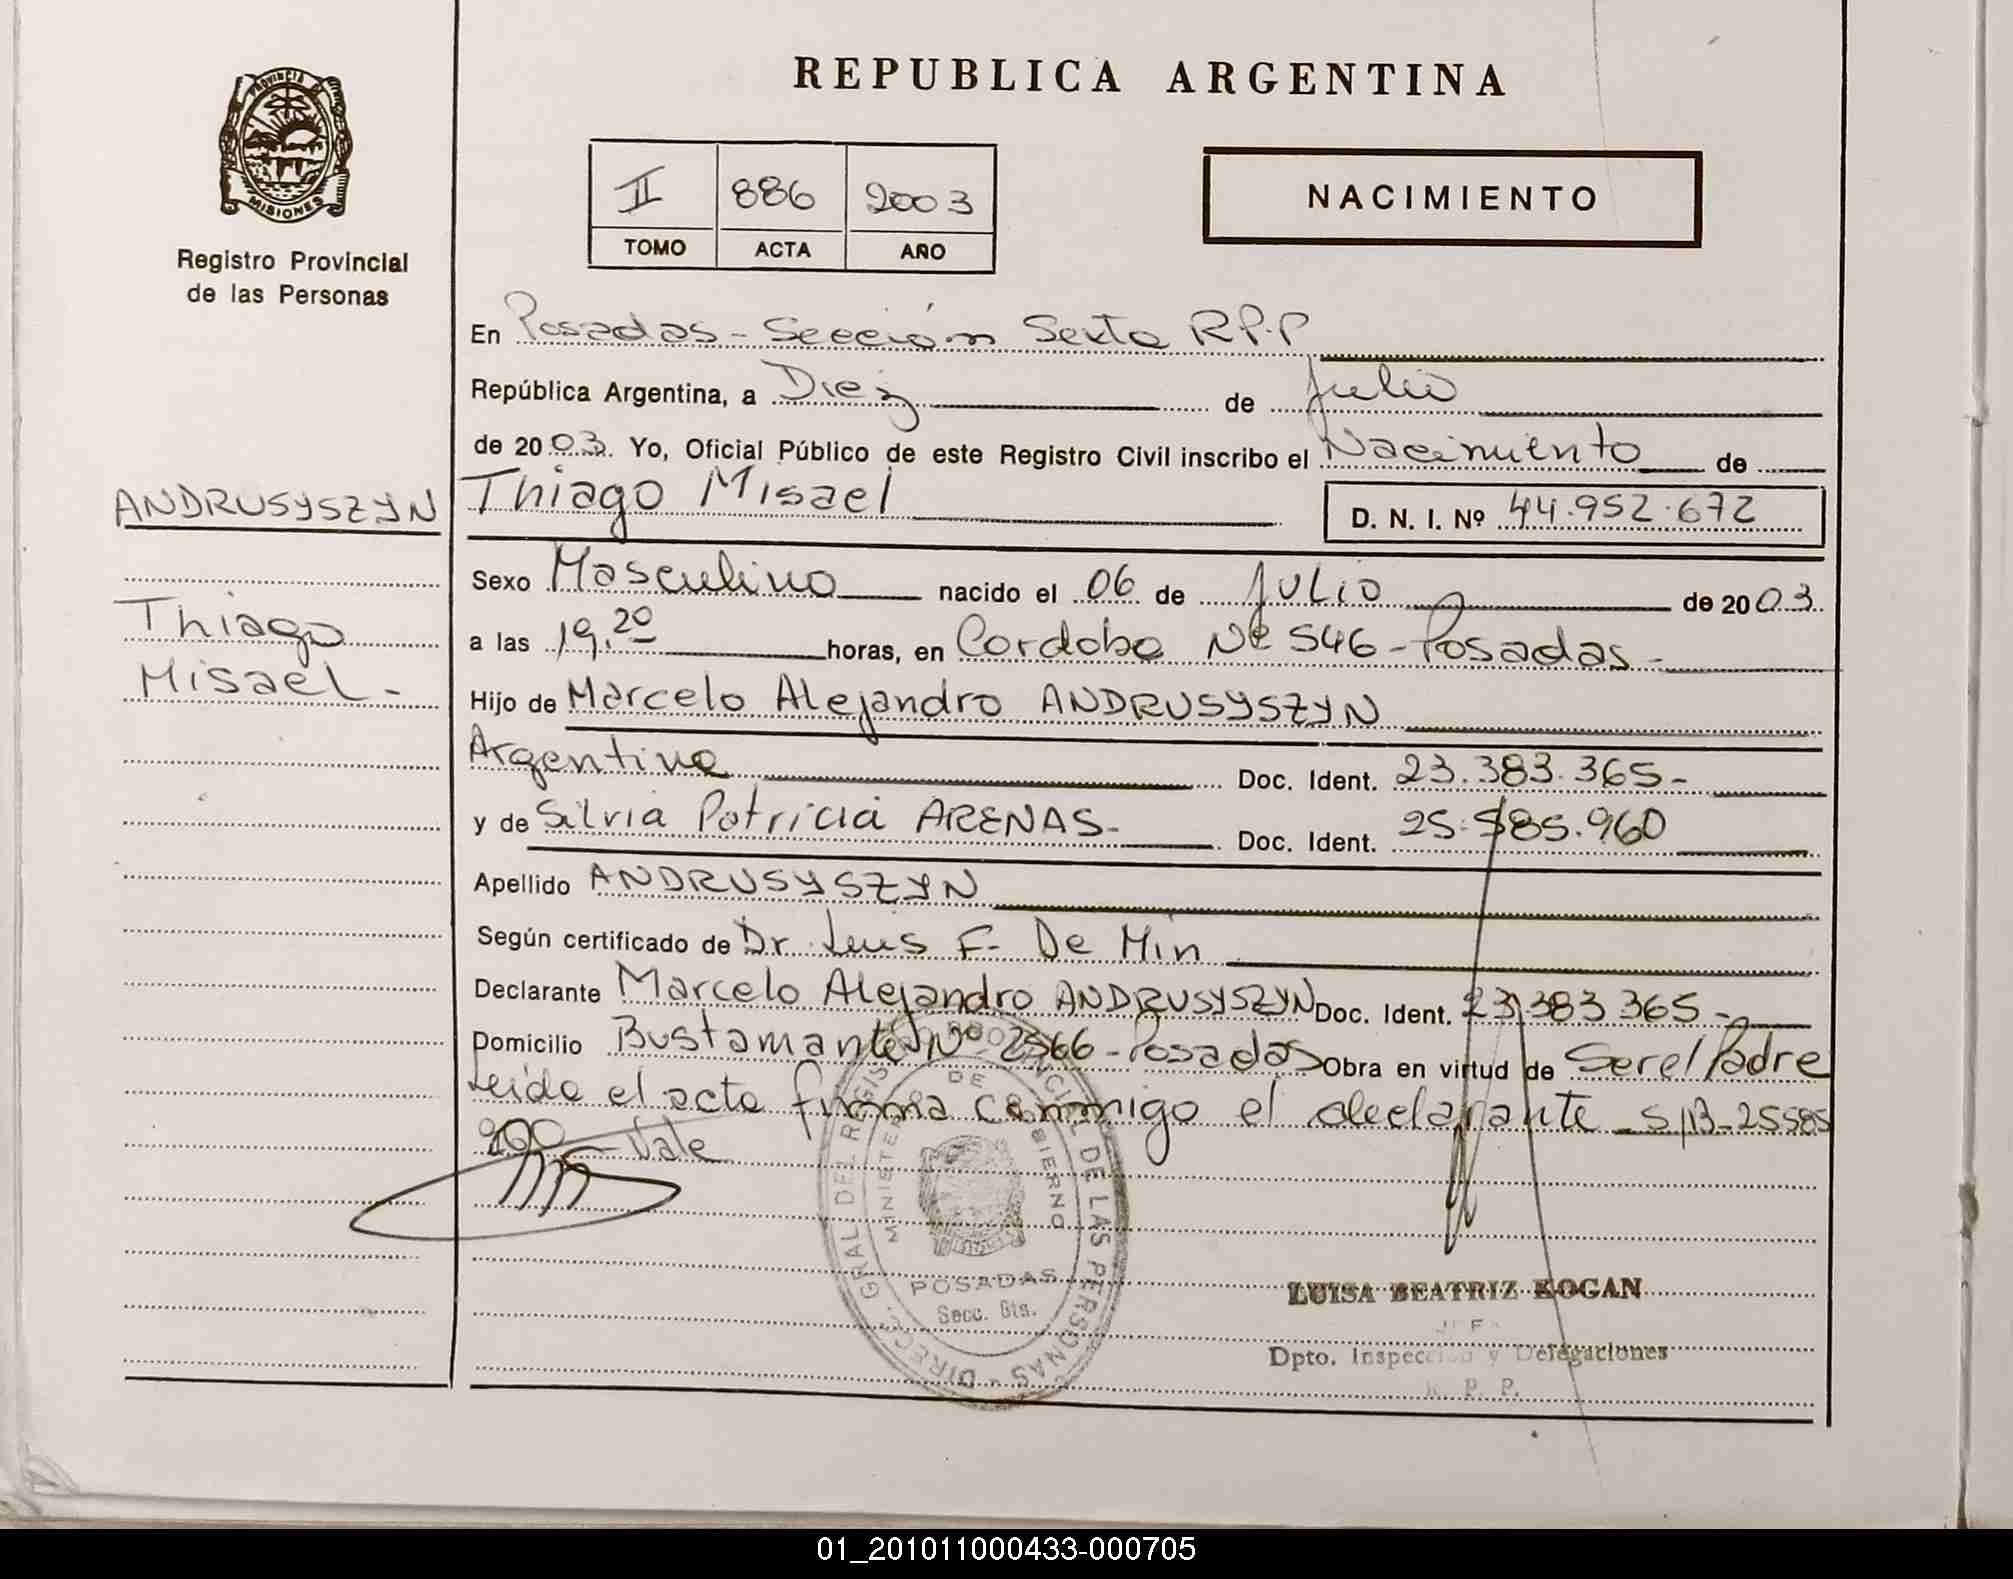 REPUBLICA ARGENTINA
PROVINCIA DE
MISIONES
Registro Provincial
de las Personas
II 886 2003
TOMO ACTA AÑO
NACIMIENTO
En Posadas - Sección Sexta R.P.P
República Argentina, a Diez de Julio
de 2003. Yo, Oficial Público de este Registro Civil inscribo el Nacimiento de
Thiago Misael D. N. I. Nº 44.952.672
ANDRUSYSZYN
Thiago
Misael -
Sexo Masculino nacido el 06 de Julio de 2003.
a las 19.20 horas, en Cordoba Nº 546 - Posadas -
Hijo de Marcelo Alejandro ANDRUSYSZYN
Argentino Doc. Ident. 23.383.365-
y de Silvia Patricia ARENAS- Doc. Ident. 25.585.960
Apellido ANDRUSYSZYN
Según certificado de Dr. Luis F. De Min
Declarante Marcelo Alejandro ANDRUSYSZYN Doc. Ident. 23.383.365-
Domicilio Bustamante Nº 2566 - Posadas Obra en virtud de Ser el Padre
Leida el acta firma conmigo el declarante - S/B-25585
960 - Vale
DIRECC. GRAL DEL REGISTRO PROVINCIAL DE LAS PERSONAS
MINISTERIO DE GOBIERNO
POSADAS
Secc. 6ta.
LUISA BEATRIZ KOGAN
JEFA
Dpto. Inspección y Delegaciones
R. P. P.
01_201011000433-000705